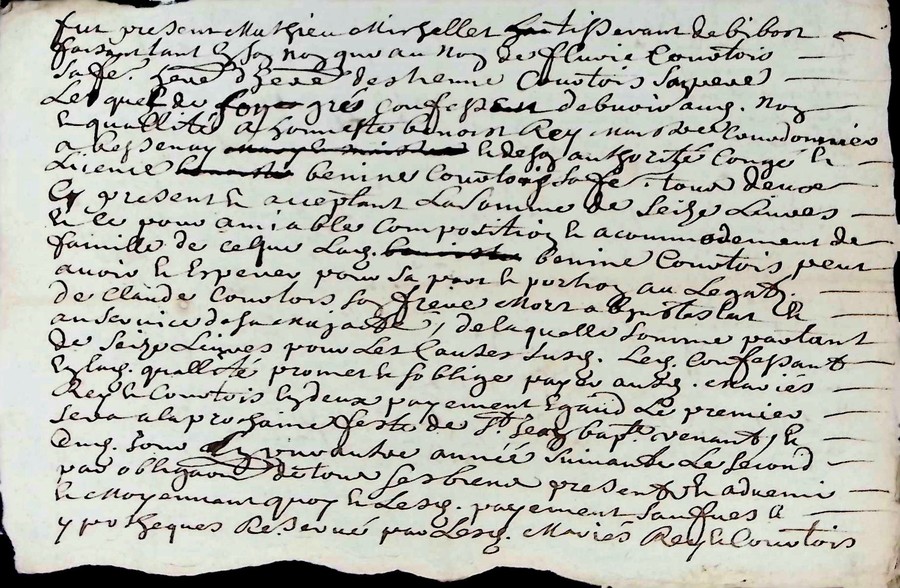 fut present Mathieu Michellet tisserant de bibost
faisant tant a son nom que au nom de fluvie Courtois
sa fe. here d'here destienne Courtois son pere
Lequel de grés Confesse debvoir aud. nom
et quallité a honneste benoist Rey Maistre Courdonnier
a bessenay et de son authorité Congé et
Licence benine Courtois sa fe. tous deux
Cy present et acceptant La somme de Seize Livres
et ce pour amiable Composition et acommodement de
famille de ce que Lad. benine Courtois peut
avoir et Esperer pour sa part et portion au Legat
de Claude Courtois son frere Mort a Let
au service de sa Majesté, de laquelle somme partant
de Seize Livres pour Les Causes susd. Led. Confessant
Esd. quallité promet et soblige payer ausd. mariés
Rey et Courtois En deux payement Egaud Le premier
sera a la prochaine feste de St. Jean bapt. venant, et
Dud. Jour En un autre année suivante Le second
par obligaon de tous ses biens present et advenir
et Moyennant quoy et Lesd. payement sauf
ypotheques Reservé par Lesd. Mariés Rey et Courtois